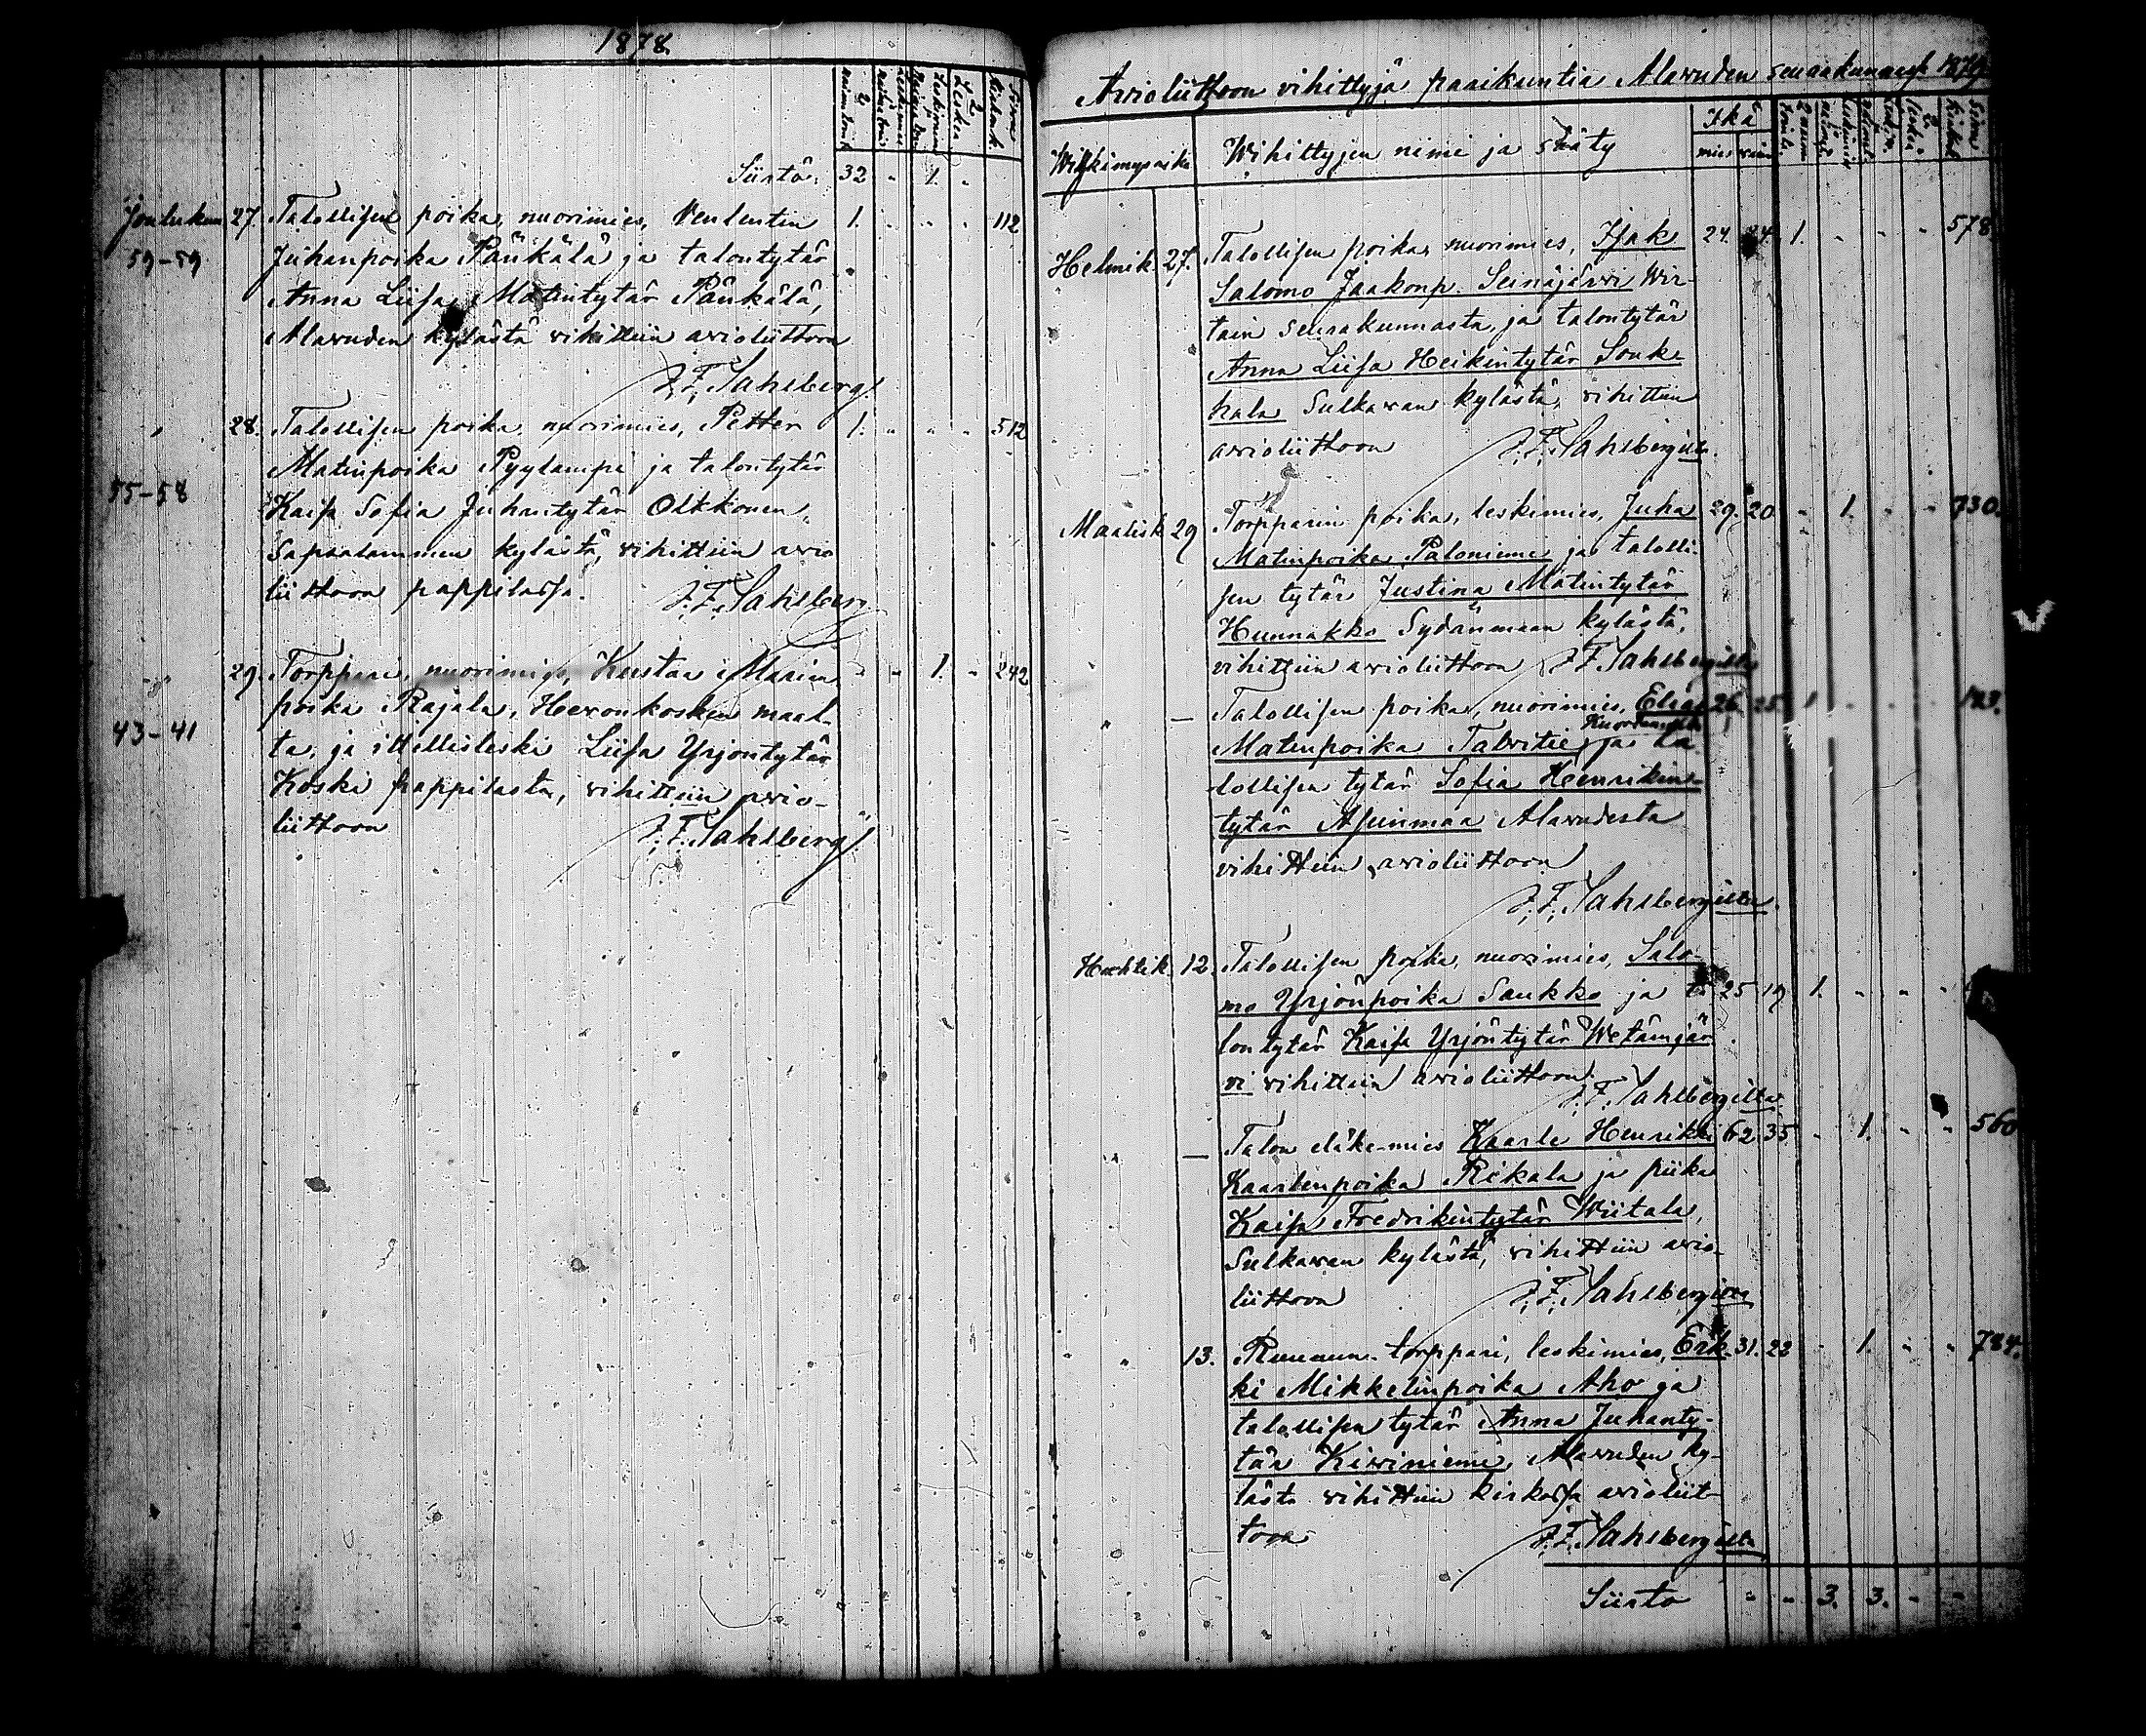 1878.
Siirto. 32 " 1. "
Joulukuu 27. Talollisen poika, nuorimies, Venlentin 1. " " " 112
59-59 Juhanpoika Pänkälä ja talontytär
Anna Liisa Matintytär Pänkälä,
Alawuden kylästä vihittiin avioliittoon
J. F. Sahlberg.
" 28. Talollisen poika, nuorimies, Petter 1. " " " 512
Matinpoika Pyylampi ja talontytär
55-58
Kaisa Sofia Juhantytär Olkkonen,
Sapsalammen kylästä, vihittiin avio
liittoon pappilassa.
J. F. Sahlberg
" 29. Torppari, nuorimies, Kustaa Marian " " 1. " 242
poika Rajala, Heronkosken maal-
43-41
ta, ja itellisleski Liisa Yrjöntytär
Koski pappilasta, vihittiin avio-
liittoon
J. F. Sahlberg.
Avioliittoon vihittyjä paaikuntia Alawuden seurakunnasta 1879.
Wihkimyspaikka Wihittyjen nimi ja sääty Ikä
mies waimo
Helmik. 27. Talollisen poika, nuorimies, Isak 24. 24. 1. " " " 578.
Salomo Jaakonp. Seinäjärwi Wir-
tain seurakunnasta, ja talontytär
Anna Liisa Heikintytär Souk-
kala Sulkawan kylästä, vihittiin
avioliittoon J. F. Sahlbergilta.
Maalisk 29 Torpparin poika, leskimies, Juha 29. 20 " 1. " " 730.
Matinpoika Paloniemi ja talolli-
sen tytär Justina Matintytär
Hunnakko Sydänmaan kylästä,
vihittiin avioliittoon J. F. Sahlbergilta
" — Talollisen poika, nuorimies, Elias 26. 25 1 " " " 123.
Kuortaneelta
Matinpoika Talvitie, ja ta
lollisen tytär Sofia Henrikin-
tytär Asunmaa Alawudesta
vihittiin avioliittoon
J. F. Sahlbergilta.
Huhtik. 12. Talollisen poika, nuorimies, Salo-
mo Yrjönpoika Saukko ja ta 25 19 1. " " "
lontytär Kaisa Yrjöntytär Wetämjär
vi vihittiin avioliittoon.
J. F. Sahlbergilta
" — Talon eläke-mies Kaarle Henrikki 62. 35 " 1. " " 560
Kaarlenpoika Rikala ja piika
Kaisa Fredrikintytär Wiitala,
Sulkawan kylästä, vihittiin avio-
liittoon J. F. Sahlbergilta
" 13. Ruununtorppari, leskimies, Erk- 31. 22 " 1. " " 784.
ki Mikkelinpoika Aho ja
talollisen tytär Anna Juhanty-
tär Kiviniemi, Alawuden ky-
lästä vihittiin kirkossa avioliit-
toon J. F. Sahlbergilta
Siirto " " 3. 3. " "